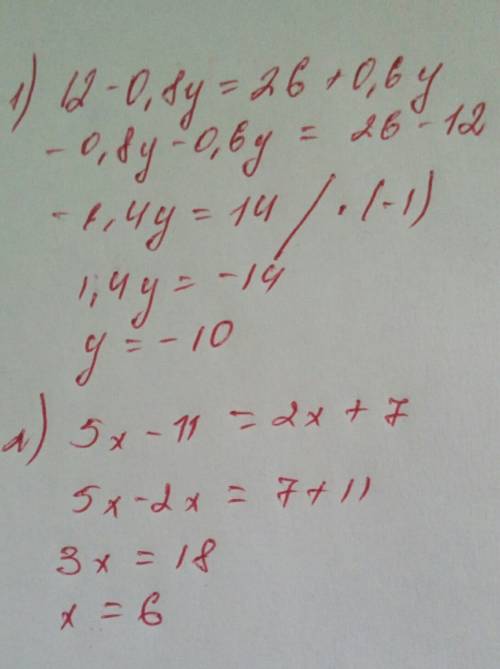 1) 12 - 0,8y = 26 + 0,6y
- 0,8y - 0,6y = 26 - 12
- 1,4y = 14 / · (-1)
1,4y = -14
y = -10
2) 5x - 11 = 2x + 7
5x - 2x = 7 + 11
3x = 18
x = 6